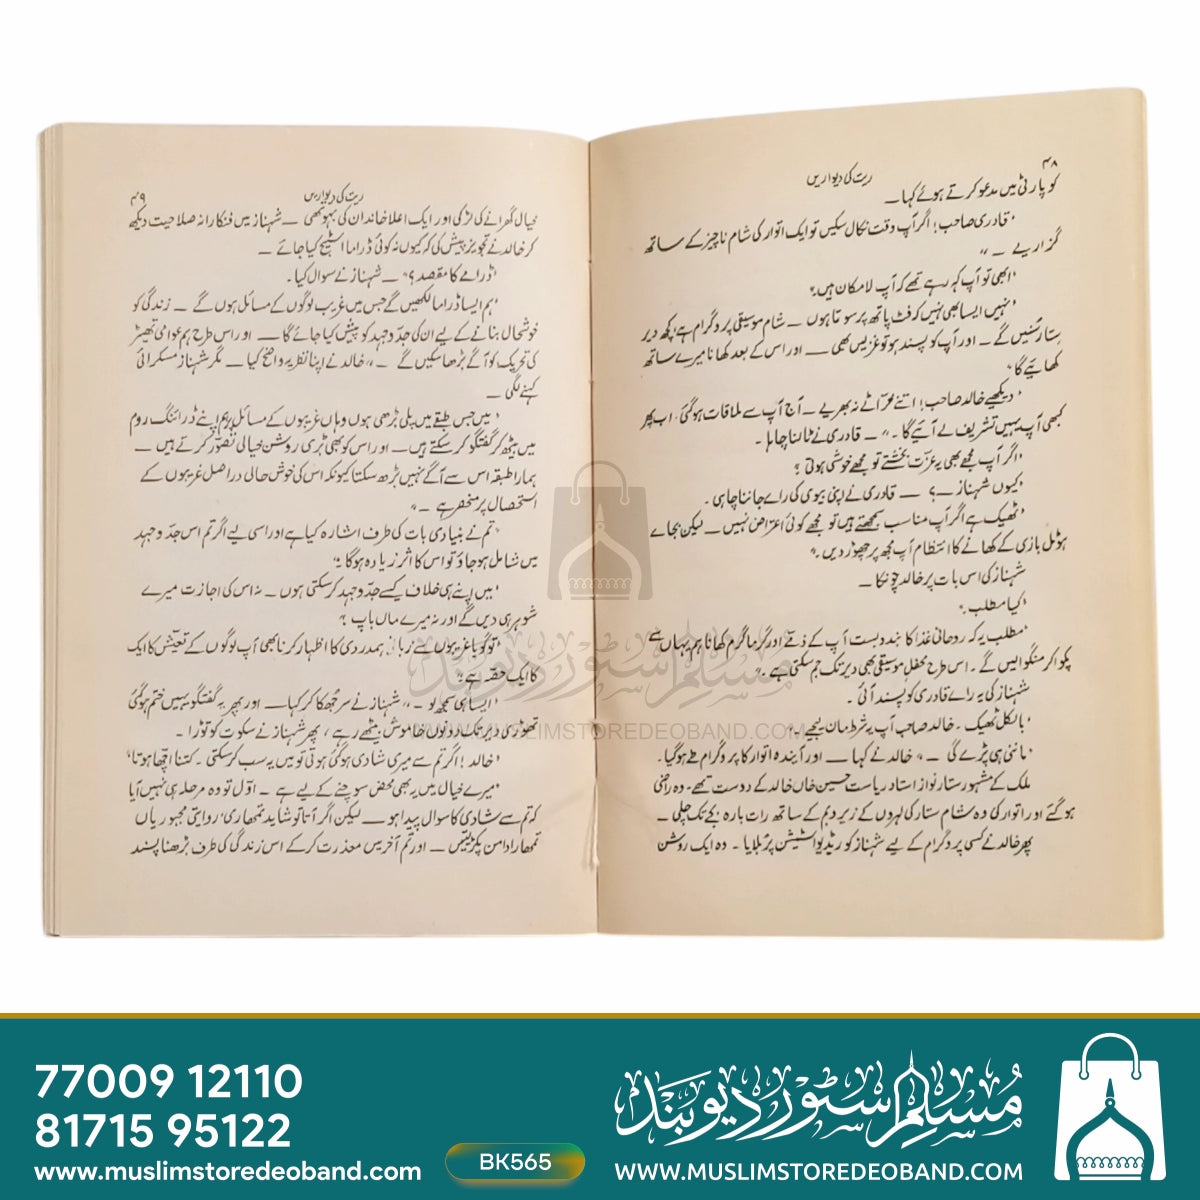 ۴۸
ریت کی دیواریں
کو پارٹی میں مدعو کرتے ہوئے کہا ــ
'قادری صاحب! اگر آپ وقت نکال سکیں تو ایک اتوار کی شام ناچیز کے ساتھ
گزاریے ــ "
'ابھی تو آپ کہہ رہے تھے کہ آپ لامکان ہیں۔"
'نہیں ایسا بھی نہیں کہ فٹ پاتھ پر سوتا ہوں ــ شام موسیقی پروگرام ہے، کچھ دیر
ستار سُنیں گے۔ اور آپ کو پسند ہو تو غزلیں بھی ــ اور اس کے بعد کھانا میرے ساتھ
کھائیے گا"
'دیکھیے خالد صاحب! اتنے خرّاٹے نہ بھریے ــ آج آپ سے ملاقات ہو گئی۔ اب پھر
کبھی آپ یہیں تشریف لے آئیے گا۔" ــ قادری نے ٹالنا چاہا۔
'اگر آپ مجھے بھی یہ عزّت بخشتے تو مجھے خوشی ہوتی؟
'کیوں شہناز ــ؟ ــ قادری نے اپنی بیوی کی رائے جاننا چاہی۔
'ٹھیک ہے اگر آپ مناسب سمجھتے ہیں تو مجھے کوئی اعتراض نہیں ــ لیکن بجائے
ہوٹل بازی کے کھانے کا انتظام آپ مجھ پر چھوڑ دیں۔"
شہناز کی اس بات پر خالد چونکا ــ
'کیا مطلب۔"
'مطلب یہ کہ روحانی غذا کا بندوبست آپ کے ذمّے اور گرما گرم کھانا ہم یہاں سے
پکوا کر منگوالیں گے۔ اس طرح محفلِ موسیقی بھی دیر تک جم سکتی ہے۔"
شہناز کی یہ رائے قادری کو پسند آئی۔
'بالکل ٹھیک ۔ خالد صاحب آپ یہ شرط مان لیجیے۔"
'ماننی ہی پڑے گی ــ" خالد نے کہا ــ اور آیندہ اتوار کا پروگرام طے ہو گیا۔
ملک کے مشہور ستار نواز استاد ریاست حسین خاں خالد کے دوست تھے۔ وہ راضی
ہو گئے اور اتوار کی وہ شام ستار کی لہروں کے زیر و بم کے ساتھ رات بارہ بجے تک چلی ــ
پھر خالد نے کسی پروگرام کے لیے شہناز کو ریڈیو اسٹیشن پر بُلایا۔ وہ ایک روشن
ریت کی دیواریں
۴۹
خیال گھرانے کی لڑکی اور ایک اعلا خاندان کی بہو تھی ــ شہناز میں فنکارانہ صلاحیت دیکھ
کر خالد نے تجویز پیش کی کہ کیوں نہ کوئی ڈراما اسٹیج کیا جائے ــ
'ڈرامے کا مقصد؟" ــ شہناز نے سوال کیا۔
'ہم ایسا ڈراما لکھیں گے جس میں غریب لوگوں کے مسائل ہوں گے ــ زندگی کو
خوشحال بنانے کے لیے ان کی جدّوجہد کو پیش کیا جائے گا ــ اور اس طرح ہم عوامی تھیٹر
کی تحریک کو آگے بڑھا سکیں گے ــ" خالد نے اپنا نظریہ واضح کیا ــ مگر شہناز مسکرائی
کہنے لگی ــ
'میں جس طبقے میں پلی بڑھی ہوں وہاں غریبوں کے مسائل پر ہم اپنے ڈرائنگ روم
میں بیٹھ کر گفتگو کر سکتے ہیں ــ اور اس کو بھی بڑی روشن خیالی تصوّر کرتے ہیں ــ
ہمارا طبقہ اس سے آگے نہیں بڑھ سکتا کیونکہ اس کی خوش حالی دراصل غریبوں کے
استحصال پر منحصر ہے ــ"
'تم نے بنیادی بات کی طرف اشارہ کیا ہے اور اسی لیے اگر تم اس جدّوجہد
میں شامل ہو جاؤ تو اس کا اثر زیادہ ہوگا؟"
'میں اپنے ہی خلاف کیسے جدّوجہد کر سکتی ہوں ــ نہ اس کی اجازت میرے
شوہر ہی دیں گے اور نہ میرے ماں باپ؟"
'تو گویا غریبوں سے زبانی ہمدردی کا اظہار کرنا بھی آپ لوگوں کے تعیّش کا ایک
کا ایک حصّہ ہے؟"
'ایسا ہی سمجھ لو ــ" شہناز نے سر جھکا کر کہا ــ اور پھر یہ گفتگو یہیں ختم ہو گئی
تھوڑی دیر تک دونوں خاموش بیٹھے رہے، پھر شہناز نے سکوت کو توڑا۔
'خالد! اگر تم سے میری شادی ہو گئی ہوتی تو میں یہ سب کر سکتی۔ کتنا اچھا ہوتا"
'میرے خیال میں یہ بھی محض سوچنے کے لیے ہے ــ اوّل تو وہ مرحلہ ہی نہیں آیا
کہ تم سے شادی کا سوال پیدا ہو ــ لیکن اگر آتا تو شاید تمھاری روایتی مجبوریاں
تمھارا دامن پکڑ لیتیں ــ اور تم آخر میں معذرت کر کے اس زندگی کی طرف بڑھنا پسند
مسلم سٹور دیوبند
WWW.MUSLIMSTOREDEOBAND.COM
77009 12110
81715 95122
www.muslimstoredeoband.com
BK565
مسلم سٹور دیوبند
WWW.MUSLIMSTOREDEOBAND.COM